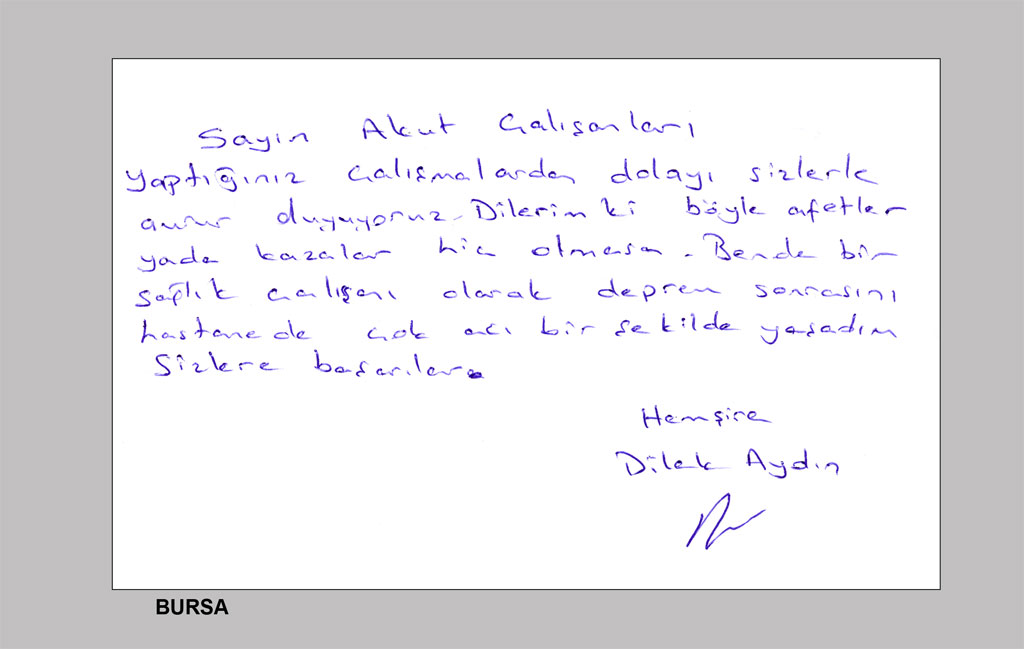 Sayın Akut Çalışanları
Yaptığınız çalışmalardan dolayı sizlerle
gurur duyuyoruz. Dilerim ki böyle afetler
yada kazalar hiç olmasın. Bende bir
sağlık çalışanı olarak deprem sonrasını
hastanede çok acı bir şekilde yaşadım
Sizlere başarılar.
Hemşire
Dilek Aydın
BURSA